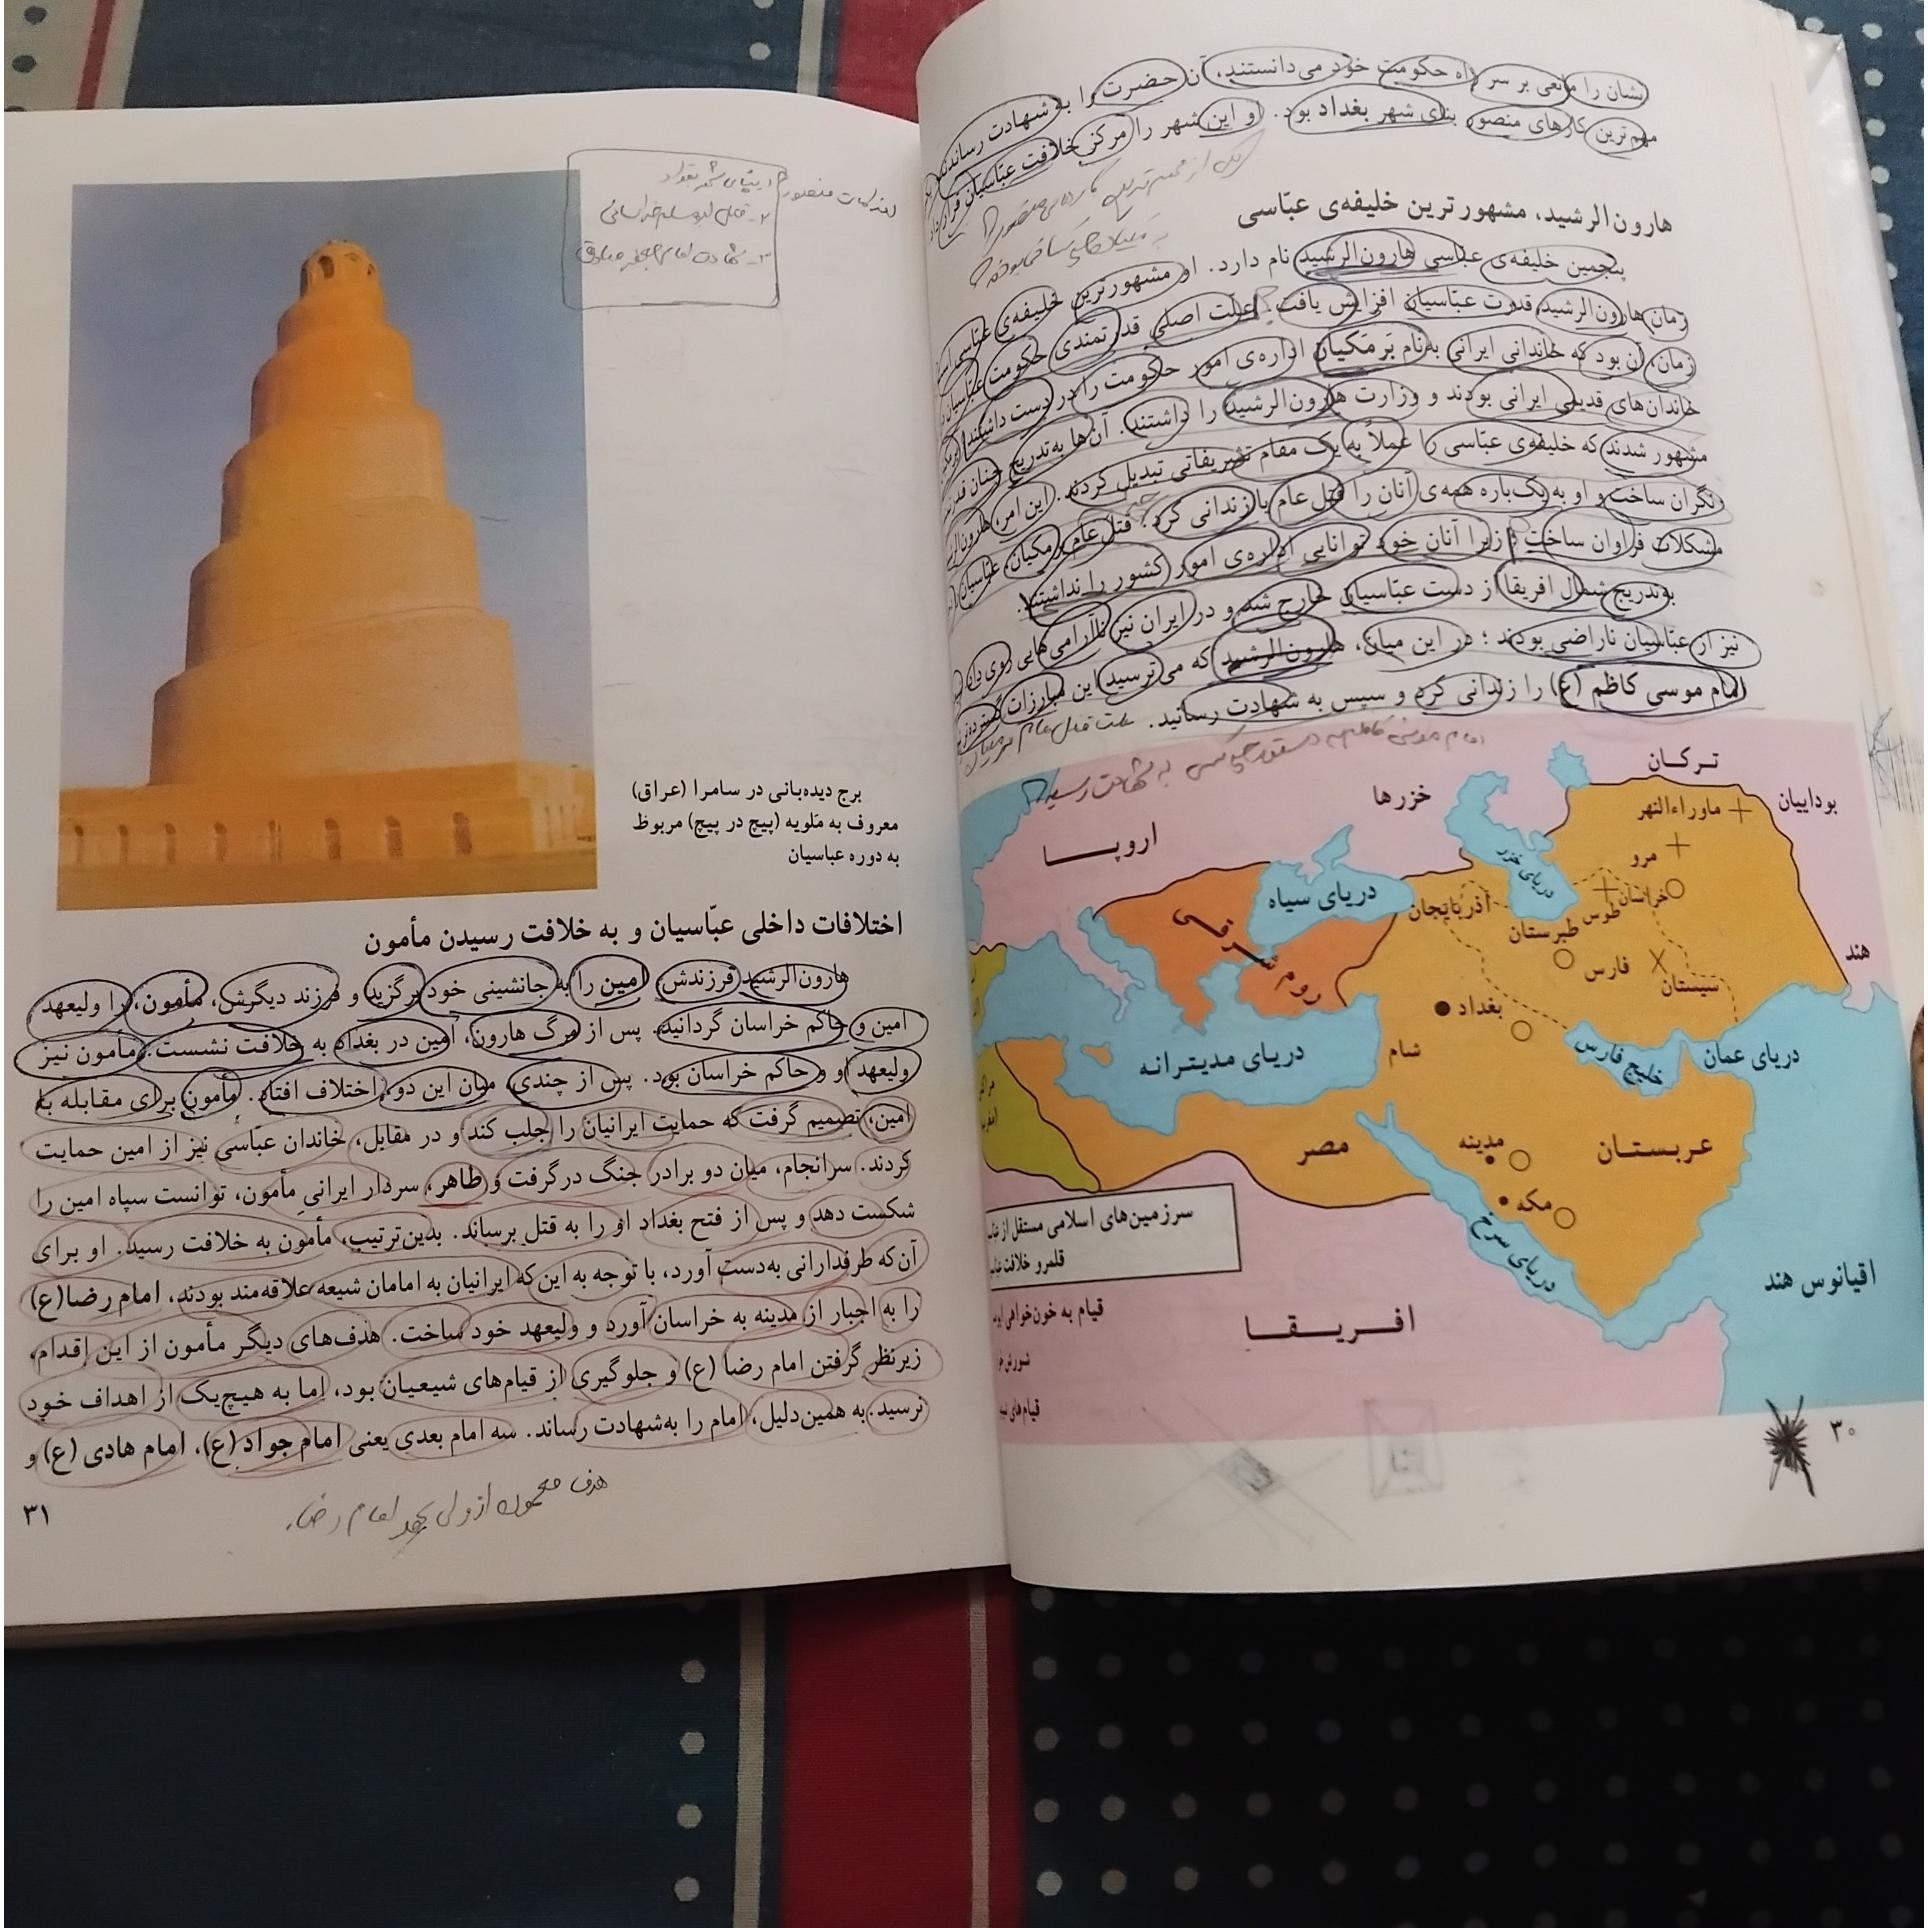 یشان را مانعی بر سر راه حکومت خود می‌دانستند، آن حضرت را به شهادت رساندند.
مهم‌ترین کارهای منصور بنای شهر بغداد بود. و این شهر را مرکز خلافت عبّاسیان قرار داد
هارون‌الرشید، مشهورترین خلیفه‌ی عبّاسی
پنجمین خلیفه‌ی عبّاسی هارون‌الرشید نام دارد. او مشهورترین خلیفه‌ی عبّاسی
زمان هارون‌الرشید قدرت عبّاسیان افزایش یافت. علّت اصلی قدرتمندی حکومت عبّاسیان
زمان، آن بود که خاندانی ایرانی به‌نام بَرمَکیان اداره‌ی امور حکومت را در دست داشتند.
خاندان‌های قدیمی ایرانی بودند و وزارت هارون‌الرشید را داشتند. آن‌ها به‌تدریج چنان
مشهور شدند که خلیفه‌ی عبّاسی را عملاً به یک مقام تشریفاتی تبدیل کردند. این امر، هارون
نگران ساخت و او به یک‌باره همه‌ی آنان را قتل‌عام یا زندانی کرد. قتل‌عام برمکیان، عبّاسیان
مشکلات فراوان ساخت؛ زیرا آنان خود توانایی اداره‌ی امور کشور را نداشتند.
به‌تدریج شمال افریقا از دست عبّاسیان خارج شد و در ایران نیز ناآرامی‌هایی روی داد.
نیز از عبّاسیان ناراضی بودند؛ در این میان، هارون‌الرشید که می‌ترسید این مبارزات گسترده
امام موسی کاظم (ع) را زندانی کرد و سپس به شهادت رسانید.
ترکان
خزرها
بوداییان
ماوراءالنهر
اروپا
مرو
دریای خزر
خراسان
دریای سیاه
آذربایجان
طوس
طبرستان
روم شرقی
فارس
سیستان
هند
بغداد
شام
خلیج فارس
دریای عمان
دریای مدیترانه
مصر
مدینه
عربستان
مکه
دریای سرخ
سرزمین‌های اسلامی مستقل از
قلمرو خلافت
اقیانوس هند
قیام به خون‌خواهی
افریقا
شورش
قیام‌های
۳۰
اقدامات منصور
۱- بنای شهر بغداد
۲- قتل ابومسلم خراسانی
۳- شهادت امام جعفر صادق
برج دیده‌بانی در سامرا (عراق)
معروف به مَلویه (پیچ در پیچ) مربوط
به دوره عباسیان
اختلافات داخلی عبّاسیان و به خلافت رسیدن مأمون
هارون‌الرشید فرزندش امین را به جانشینی خود برگزید و فرزند دیگرش، مأمون، را ولیعهد
امین و حاکم خراسان گردانید. پس از مرگ هارون، امین در بغداد به خلافت نشست. مأمون نیز
ولیعهد او و حاکم خراسان بود. پس از چندی، میان این دو، اختلاف افتاد. مأمون برای مقابله با
امین، تصمیم گرفت که حمایت ایرانیان را جلب کند و در مقابل، خاندان عبّاسی نیز از امین حمایت
کردند. سرانجام، میان دو برادر جنگ درگرفت و طاهر، سردار ایرانیِ مأمون، توانست سپاه امین را
شکست دهد و پس از فتح بغداد او را به قتل برساند. بدین‌ترتیب، مأمون به خلافت رسید. او برای
آن‌که طرفدارانی به‌دست آورد، با توجه به این‌که ایرانیان به امامان شیعه علاقه‌مند بودند، امام رضا(ع)
را به اجبار از مدینه به خراسان آورد و ولیعهد خود ساخت. هدف‌های دیگر مأمون از این اقدام،
زیرنظر گرفتن امام رضا (ع) و جلوگیری از قیام‌های شیعیان بود، اما به هیچ‌یک از اهداف خود
نرسید. به همین دلیل، امام را به‌شهادت رساند. سه امام بعدی یعنی امام جواد (ع)، امام هادی (ع) و
۳۱